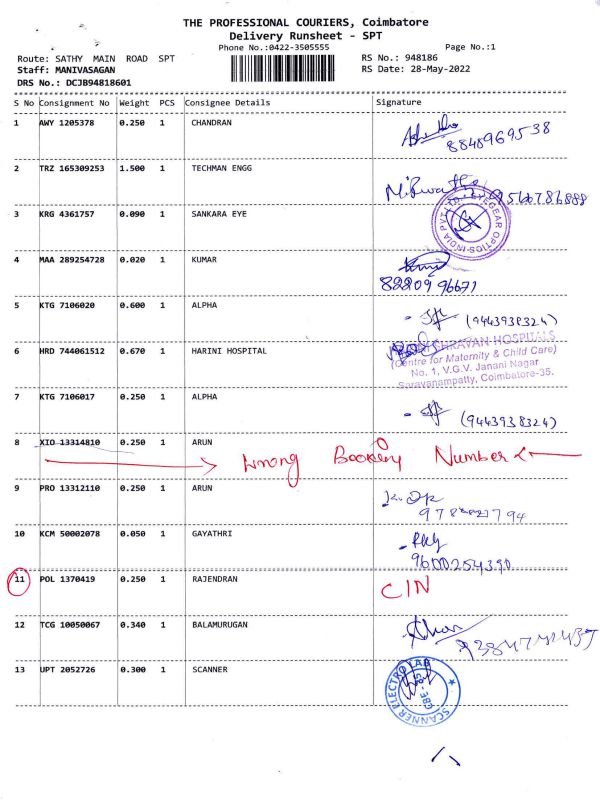 THE PROFESSIONAL COURIERS, Coimbatore
Delivery Runsheet - SPT
Phone No.:0422-3505555
Page No.:1
Route: SATHY MAIN ROAD SPT
RS No.: 948186
Staff: MANIVASAGAN
RS Date: 28-May-2022
DRS No.: DCJB94818601
S No Consignment No Weight PCS Consignee Details Signature
1 AWY 1205378 0.250 1 CHANDRAN
8848969538
2 TRZ 165309253 1.500 1 TECHMAN ENGG
9566786888
3 KRG 4361757 0.090 1 SANKARA EYE
EYEGEAR OPTICS INDIA PVT. LTD.
4 MAA 289254728 0.020 1 KUMAR
8220996671
5 KTG 7106020 0.600 1 ALPHA
(9443938324)
6 HRD 744061512 0.670 1 HARINI HOSPITAL
SHRAVAN HOSPITALS
(Centre for Maternity & Child Care)
No. 1, V.G.V. Janani Nagar
Saravanampatty, Coimbatore-35.
7 KTG 7106017 0.250 1 ALPHA
(9443938324)
8 XIO 13314810 0.250 1 ARUN
Wrong Booking Number
9 PRO 13312110 0.250 1 ARUN
10 KCM 50002078 0.050 1 GAYATHRI
9600254390
11 POL 1370419 0.250 1 RAJENDRAN
CIN
12 TCG 10050067 0.340 1 BALAMURUGAN
13 UPT 2052726 0.300 1 SCANNER
SCANNER ELECTRO LAB
CBE-